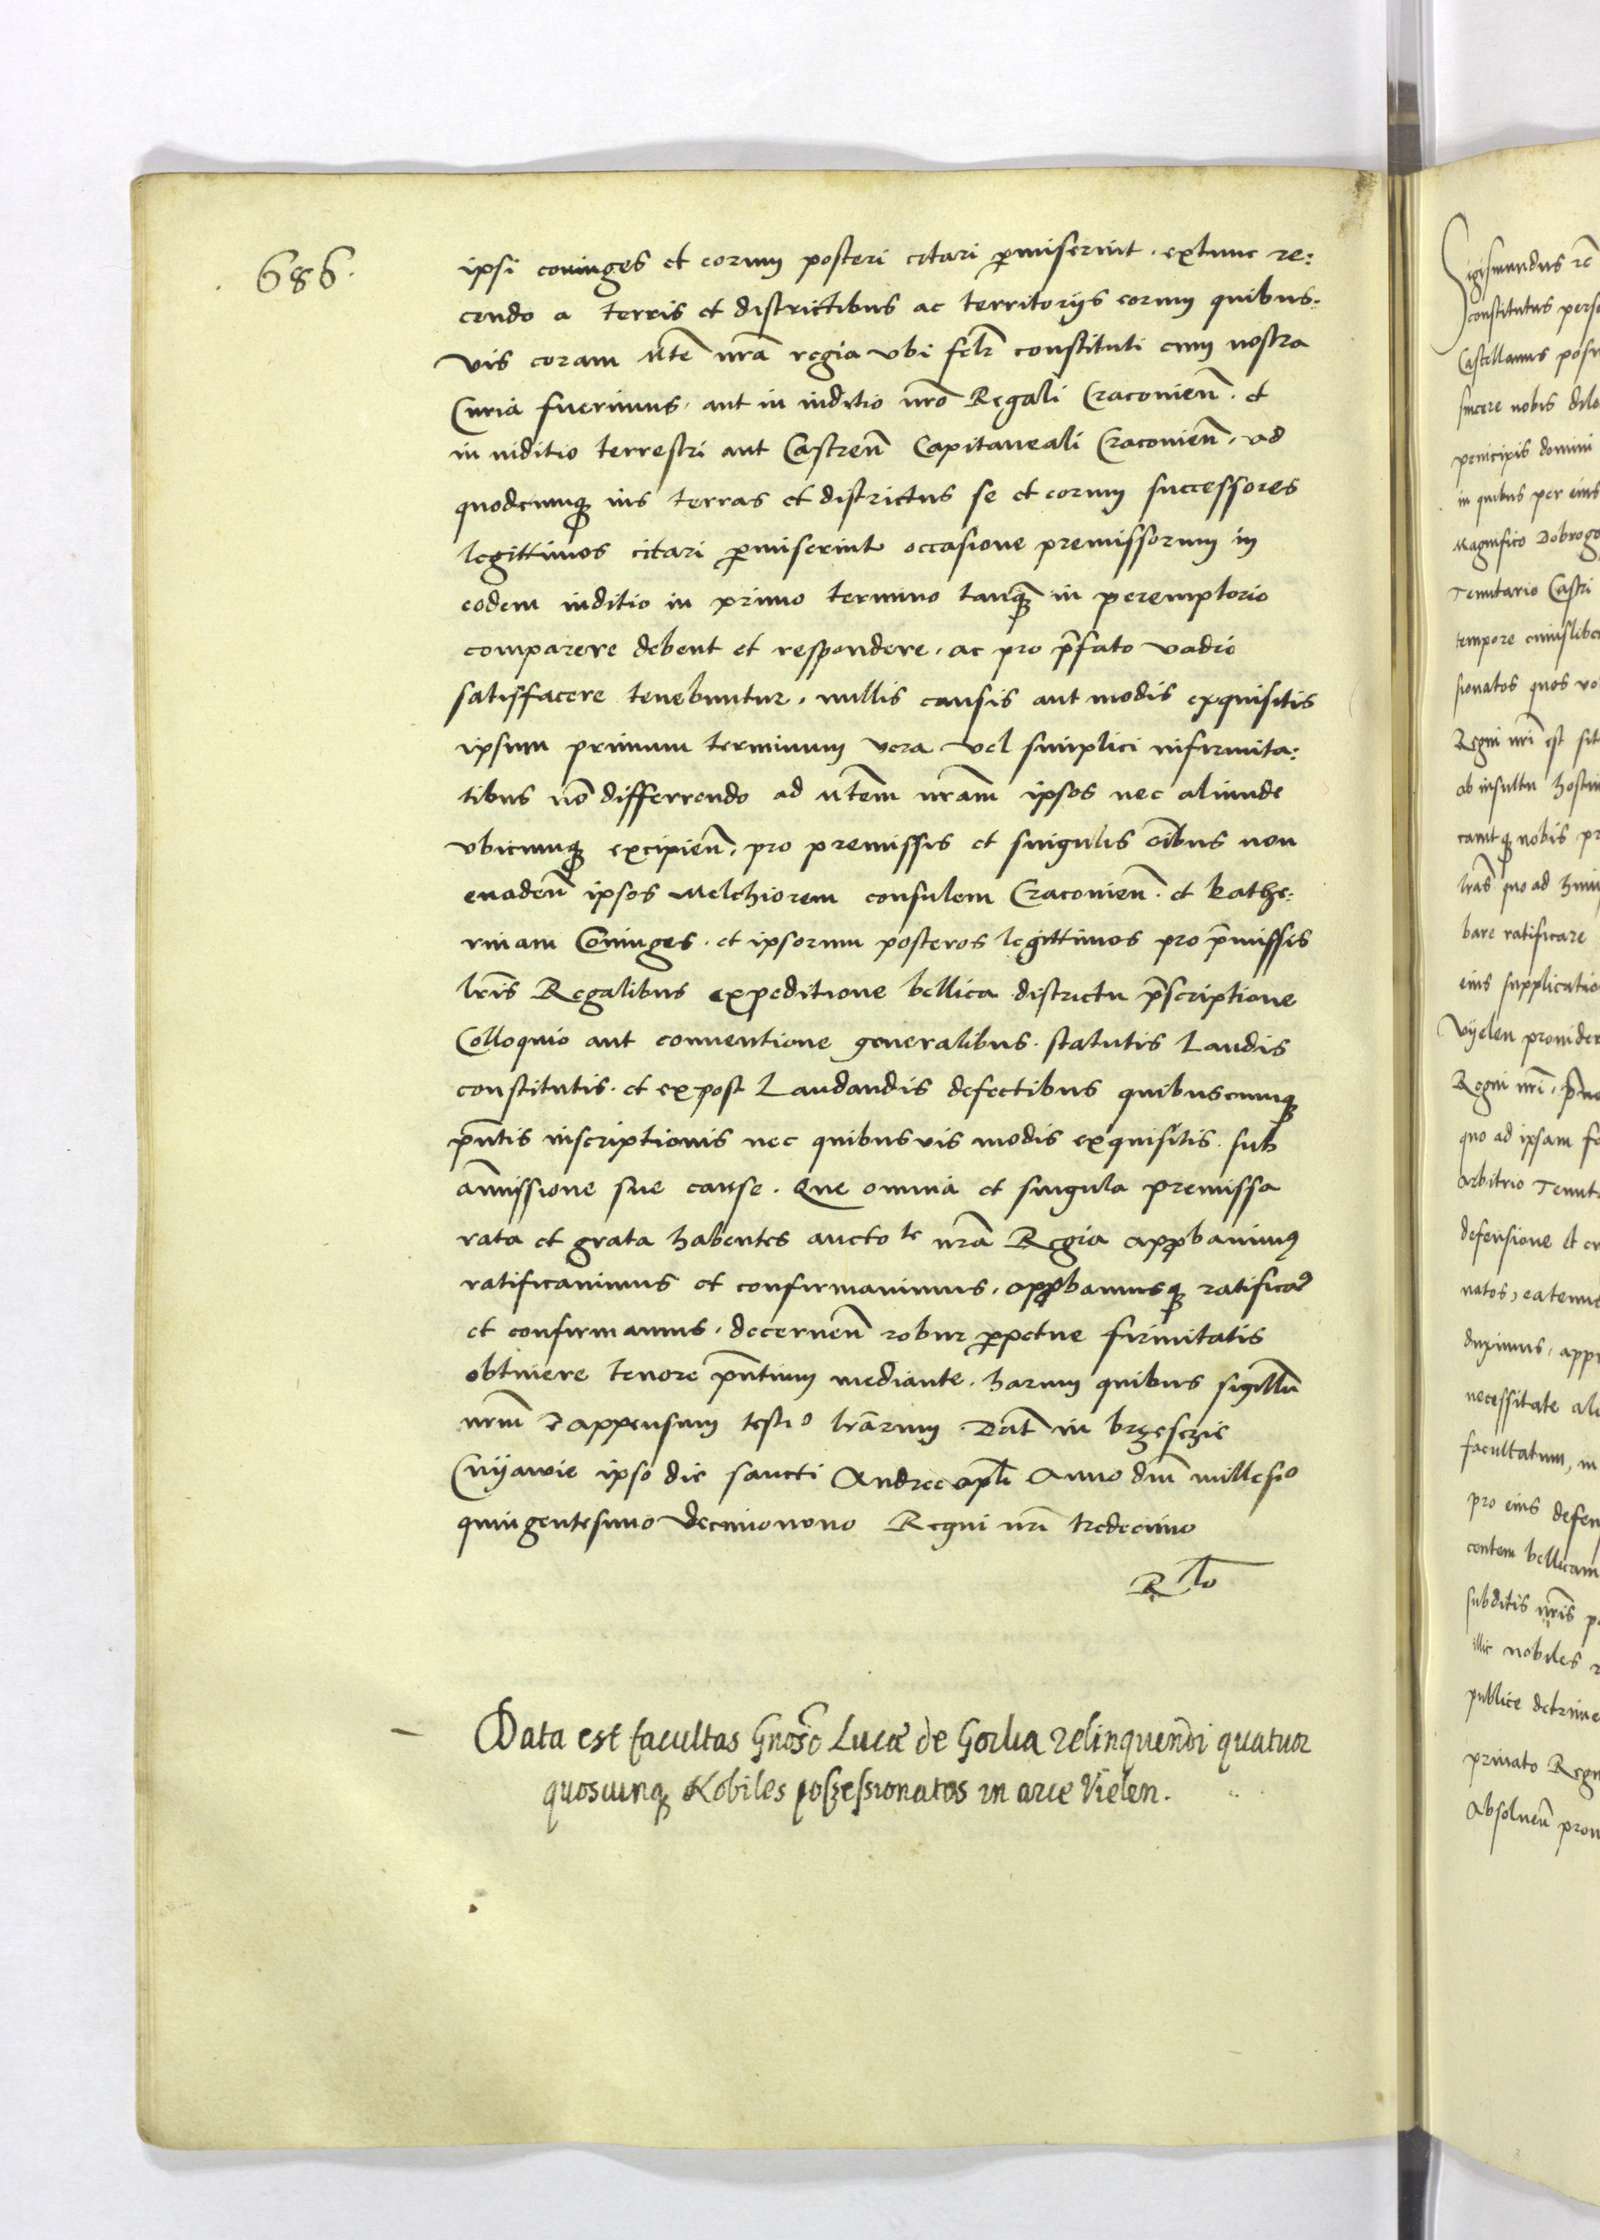 686.
ipsi coniuges et eorum posteri citari p̱miserint. extunc re:
cendo a terris et districtibus ac territorijs eorum quibus:
vis coram Mte nrā regia vbi felr constituti cum nostra
Curia fuerimus. aut in iuditio nrō Regali Cracovien̄. et
in iuditio terrestri aut Castren̄ Capitaneali Cracovien̄. ad
quodcumq̱ ius terras et districtus se et eorum successores
legittimos citari p̱miserint occasione premissorum in
eodem iuditio in primo termino tanq̱ in peremptorio
comparere debent et respondere. ac pro p̄fato vadio
satisfacere tenebuntur. nullis causis aut modis exquisitis
ipsum primum terminum vera vel simplici infirmita:
tibus nō differrendo ad Mtem nrām ipsos nec aliunde
vbicumq̱ excipien̄. pro premissis et singulis oībus non
evaden̄ ipsos Melchiorem consulem Cracovien̄. et kathe:
rinam Cōniuges. et ipsorum posteros legittimos pro p̄missis
lrīs Regalibus expeditione bellica districtu p̄scriptione
Colloquio aut conventione generalibus. statutis Laudis
constitutis. et expost Laudandis defectibus quibuscumq̱
p̄ntis inscriptionis nec quibusvis modis exquisitis. sub
am̄issione sue cause. Que omnia et singula premissa
rata et grata habentes aucto te nrā Regia app̱bavimus
ratificavimus et confirmavimus. app̱bamusq̱ ratificaꝰ
et confirmamus. decernen̄ robur p̱petue firmitatis
obtinere tenore p̄ntium mediante. harum quibus sigillū
nrm̄ ē appensum testio lrārum. Dat̄ in brzesczie
Cuyavie ipso die sancti Andree apl̄i Anno dnī millesio
quingentesimo decimonono Regni nrī tredecimo
R lo
Data est facultas Gnoso Lucæ de Gorka relinquendi quatuor
quoscunq̱ Nobiles possessionatos in arce Vielen.
Sigismundus rē
constitutus perso
Castellanus posn
sincere nobis dile
principis domini
in quibus per eius
Magnifico Dobrogo
Tenutario Castri
tempore cuiuslibe
sionatos quos vo
Regni nrī est sit
ab insultu hostiu
cavitq̱ nobis pr
lrās quo ad huiu
bare ratificare
eius supplicatio
Vijelen provider
Regni nrī.
quo ad ipsam fa
arbitrio Tenuta
defensione et cu
natos, eatenus
duximus. appr
necessitate ali
facultatum, in
pro eius defen
contem bellicam
subditis nrīs po
illic nobiles
publice detrime
privato Regn
Absolven̄ prou